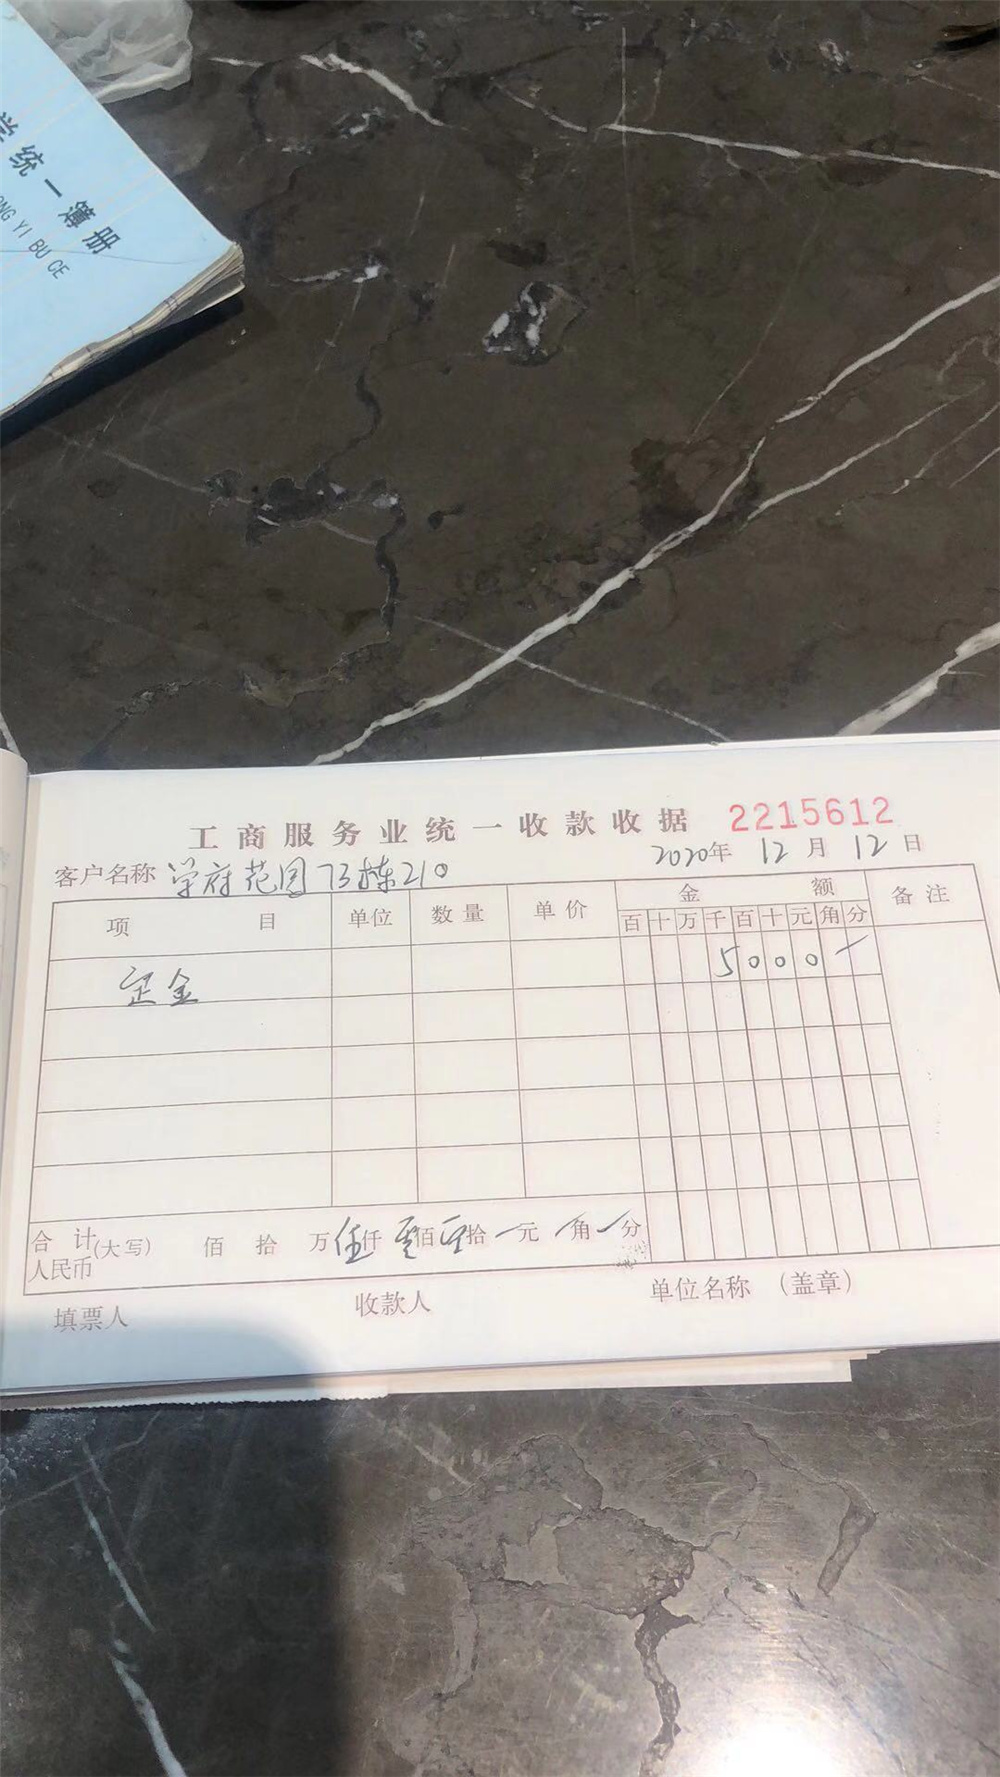 学统一簿册
ONG YI BU CE
工商服务业统一收款收据 2215612
2020年 12月 12日
客户名称 学府花园73栋210
项目 单位 数量 单价 金额 备注
百十万千百十元角分
定金 5000
合计(大写)人民币 佰 拾 万 伍仟 零佰 零拾 元 角 分
填票人 收款人 单位名称 (盖章)